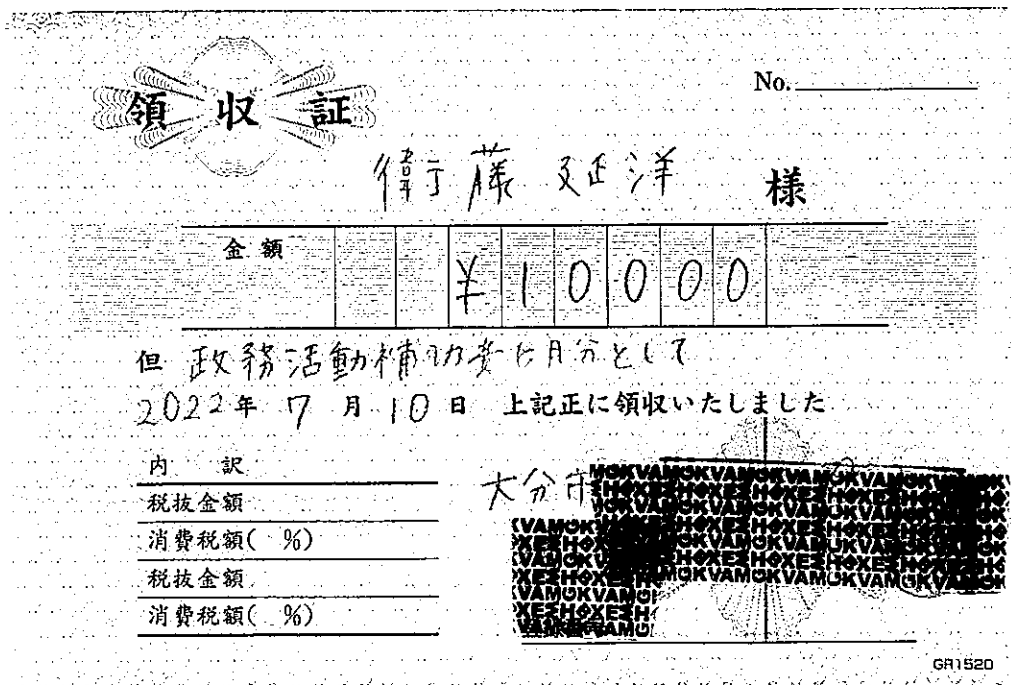 領収証
No.
衛藤延洋 様
金額 ¥10000
但 政務活動補助費6月分として
2022年 7月10日 上記正に領収いたしました
内訳
大分市
税抜金額
消費税額( %)
税抜金額
消費税額( %)
GR1520